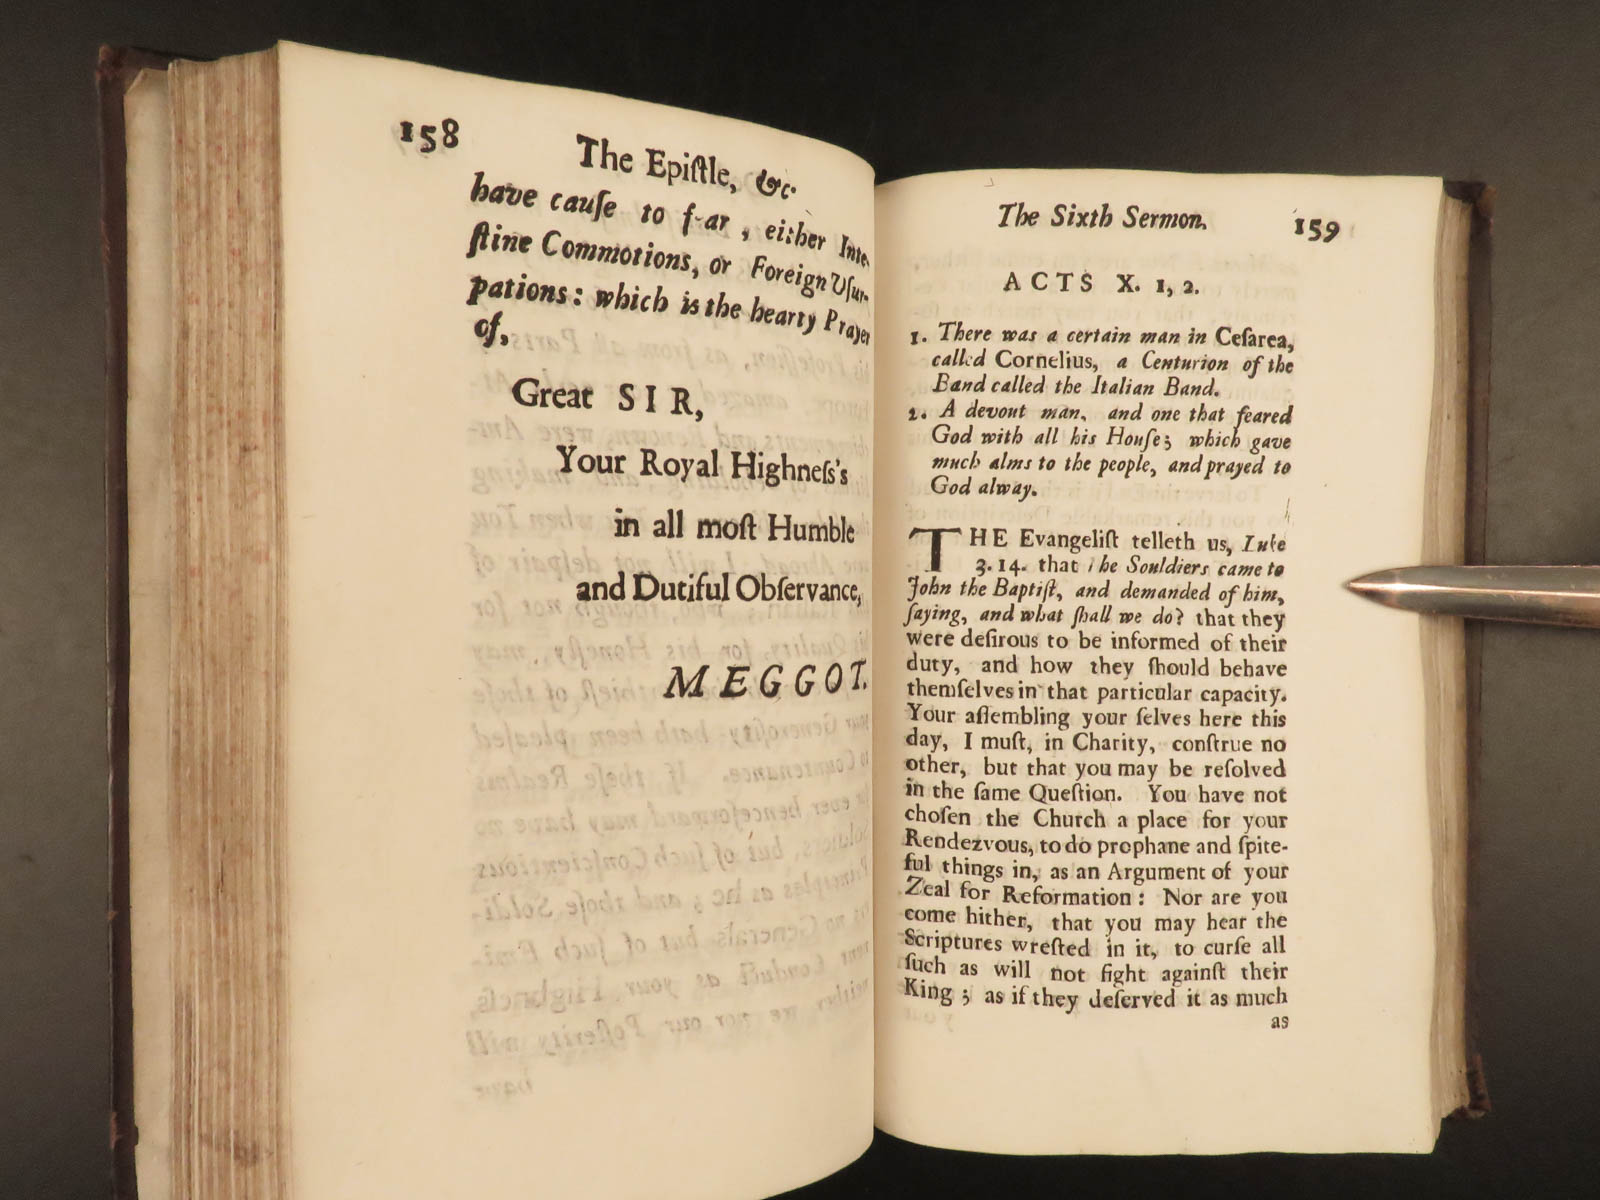 158
The Epiſtle, &c.
have cauſe to f-ar, either Inte-
ſtine Commotions, or Foreign Uſur-
pations: which is the hearty Prayer
of,
Great SIR,
Your Royal Highneſs's
in all moſt Humble
and Dutiful Obſervance,
MEGGOT.
The Sixth Sermon. 159
ACTS X. 1, 2.
1. There was a certain man in Ceſarea,
called Cornelius, a Centurion of the
Band called the Italian Band.
2. A devout man, and one that feared
God with all his Houſe; which gave
much alms to the people, and prayed to
God alway.
THE Evangeliſt telleth us, Luke
3. 14. that the Souldiers came to
John the Baptiſt, and demanded of him,
ſaying, and what ſhall we do? that they
were deſirous to be informed of their
duty, and how they ſhould behave
themſelves in that particular capacity.
Your aſſembling your ſelves here this
day, I muſt, in Charity, conſtrue no
other, but that you may be reſolved
in the ſame Queſtion. You have not
choſen the Church a place for your
Rendezvous, to do prophane and ſpite-
ful things in, as an Argument of your
Zeal for Reformation: Nor are you
come hither, that you may hear the
Scriptures wreſted in it, to curſe all
ſuch as will not fight againſt their
King; as if they deſerved it as much
as